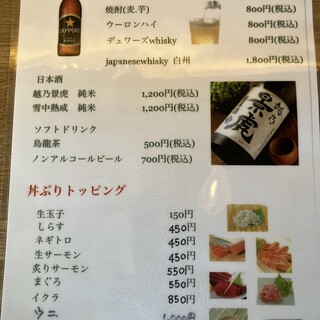 SAPPORO
焼酎(麦.芋) 800円(税込)
ウーロンハイ 800円(税込)
デュワーズwhisky 800円(税込)
japanesewhisky 白州 1,800円(税込)
日本酒
越乃景虎 純米 1,200円(税込)
雪中熟成 純米 1,200円(税込)
越乃
景虎
ソフトドリンク
烏龍茶 500円(税込)
ノンアルコールビール 700円(税込)
丼ぶりトッピング
生玉子 150円
しらす 450円
ネギトロ 450円
生サーモン 450円
炙りサーモン 550円
まぐろ 550円
イクラ 850円
ウニ 1,000円